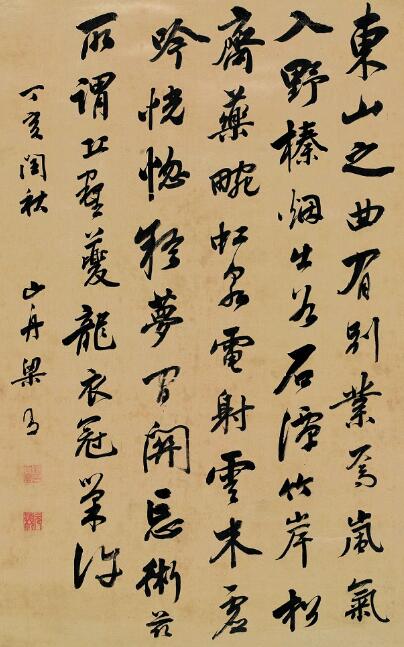 東山之曲有別業焉嵐氣
入野榛烟出谷石潭竹岸松
齋藥畹虹泉電射雲木虛
吟恍惚疑夢閒關忘術茲
所謂丘壑夔龍衣冠巢許
丁亥閏秋 山舟梁